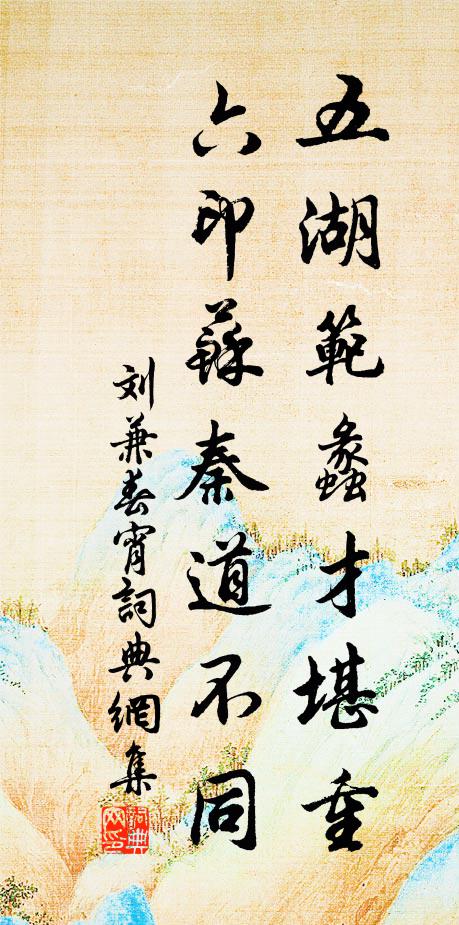 五湖範蠡才堪重
六印蘇秦道不同
刘兼春宵詞典網集
詞典
網印